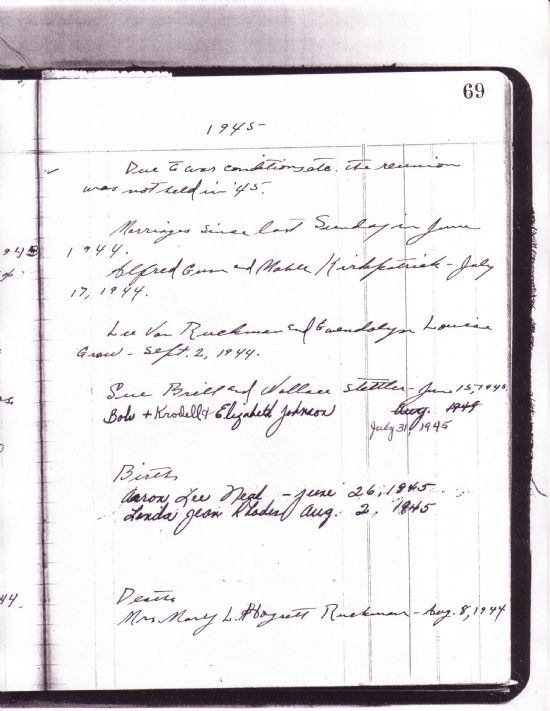 69
1945
Due to war conditions etc. the reunion
was not held in '45.
Marriages since last Sunday in June
1944.
Alfred Gum and Mable Kirkpatrick - July
17, 1944.
Lee Von Ruckman and Gwendolyn Louise
Grow - Sept. 2, 1944.
Sue Brill and Wallace Stettler - June 15, 1945
Bob + Elizabeth Johnson Aug. 1949
July 31, 1945
Births
Aaron Lee Neal - June 26, 1945
Linda Jean Rhodes Aug. 2, 1945
Deaths
Mrs. Mary L. Ruckman - Aug. 8, 1944